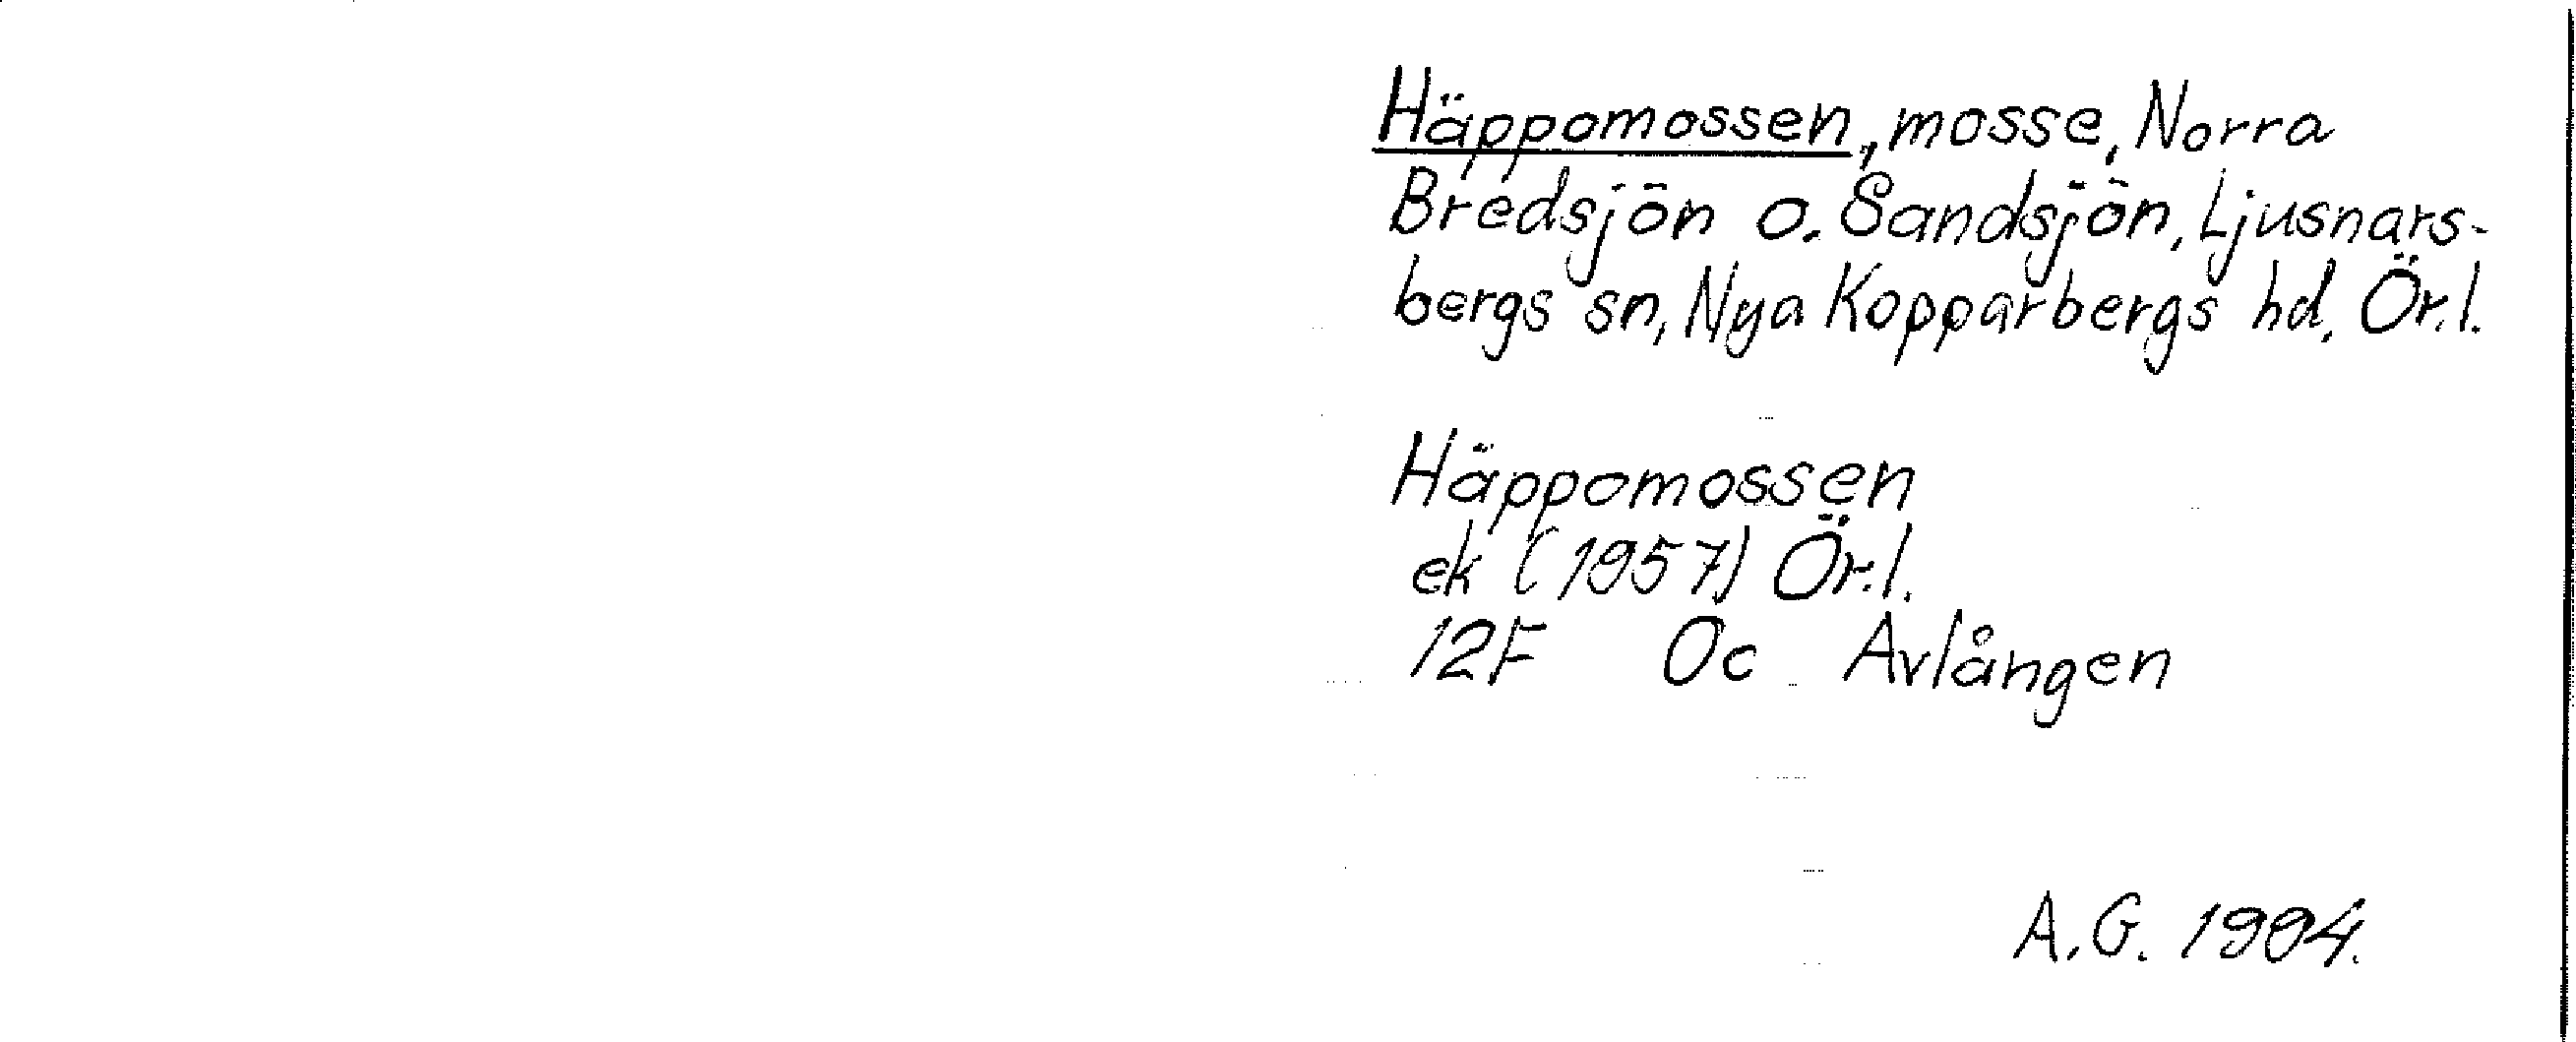 Häppomossen, mosse, Norra
Bredsjön o. Sandsjön, Ljusnars-
bergs sn, Nya Kopparbergs hd, Ör.l.
Häppomossen
ek (1957) Ör.l.
12F 0c Avlången
A.G. 1994.